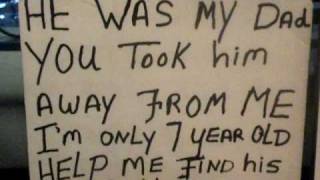 HE WAS MY DAD
YOU TOOK him
AWAY FROM ME
I'm ONLY 7 YEAR OLD
HELP ME FIND his